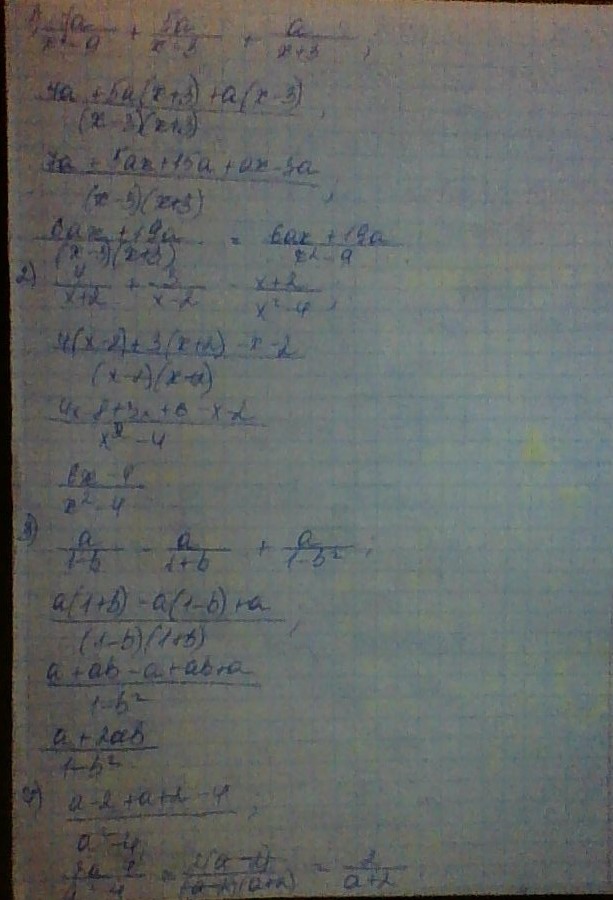 1) 7a/(x²-9) + 5a/(x-3) + a/(x+3);
(7a + 5a(x+3) + a(x-3))/((x-3)(x+3));
(7a + 5ax + 15a + ax - 3a)/((x-3)(x+3));
(6ax + 19a)/((x-3)(x+3)) = (6ax + 19a)/(x²-9)
2) 4/(x+2) + 3/(x-2) - (x+2)/(x²-4);
(4(x-2) + 3(x+2) - x - 2)/((x-2)(x+2))
(4x - 8 + 3x + 6 - x - 2)/(x²-4)
(6x - 4)/(x²-4)
3) a/(1-b) - a/(1+b) + a/(1-b²);
(a(1+b) - a(1-b) + a)/((1-b)(1+b));
(a + ab - a + ab + a)/(1-b²)
(a + 2ab)/(1-b²)
(a - 2 + a + 2 - 4)/(a²-4);
= 2(a-2)/((a-2)(a+2)) = 2/(a+2)